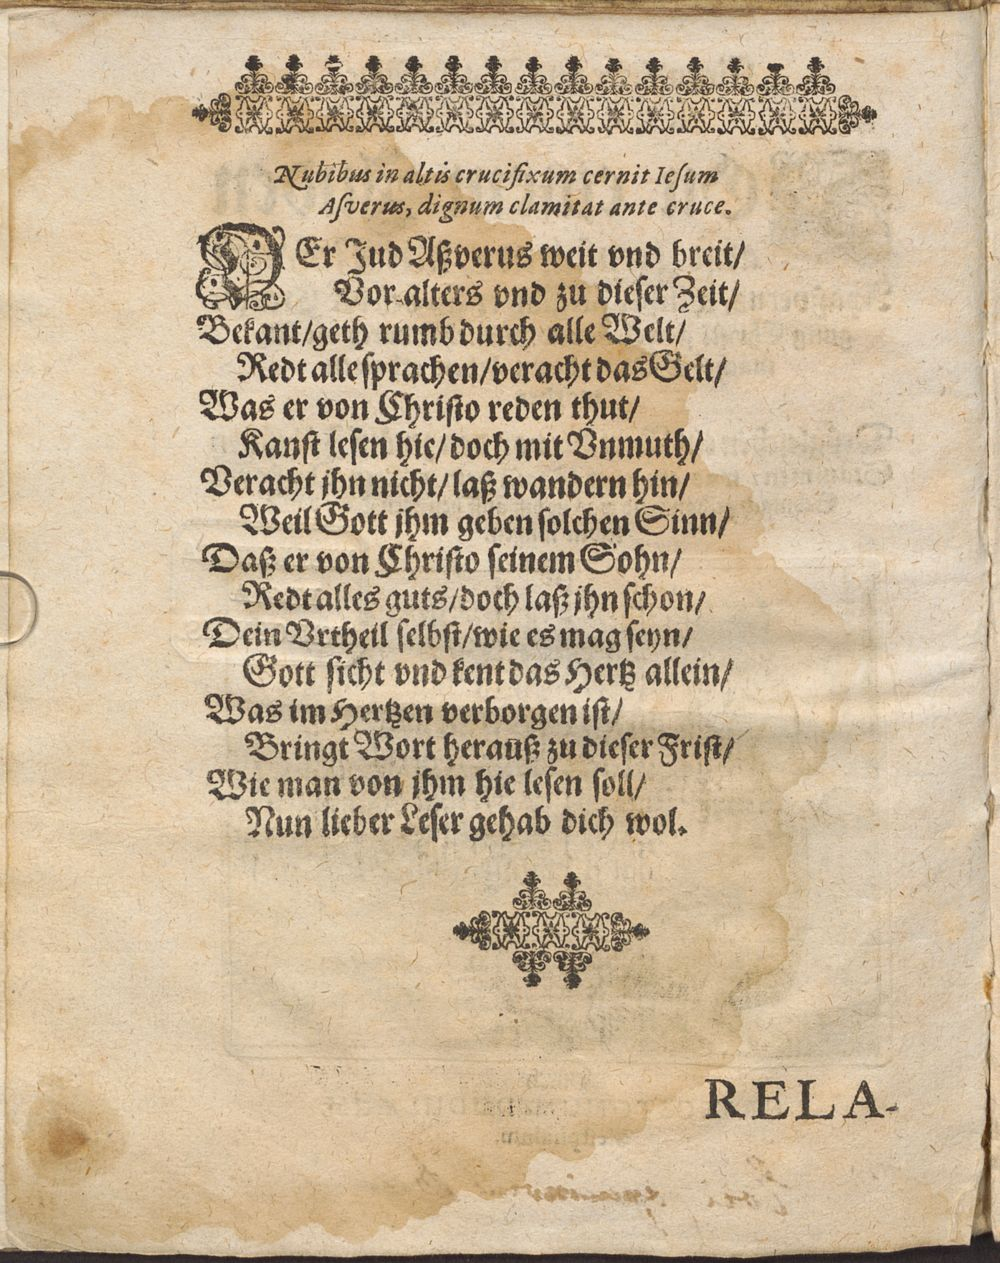 Nubibus in altis crucifixum cernit Ieſum
Aſverus, dignum clamitat ante cruce.
DEr Jud Aßverus weit vnd breit/
Vor alters vnd zu dieſer Zeit/
Bekant/geth rumb durch alle Welt/
Redt alle ſprachen/veracht das Gelt/
Was er von Chriſto reden thut/
Kanſt leſen hie/doch mit Vnmuth/
Veracht jhn nicht/laß wandern hin/
Weil Gott jhm geben ſolchen Sinn/
Daß er von Chriſto ſeinem Sohn/
Redt alles guts/doch laß jhn ſchon/
Dein Vrtheil ſelbſt/wie es mag ſeyn/
Gott ſicht vnd kent das Hertz allein/
Was im Hertzen verborgen iſt/
Bringt Wort herauß zu dieſer Friſt/
Wie man von jhm hie leſen ſoll/
Nun lieber Leſer gehab dich wol.
RELA-